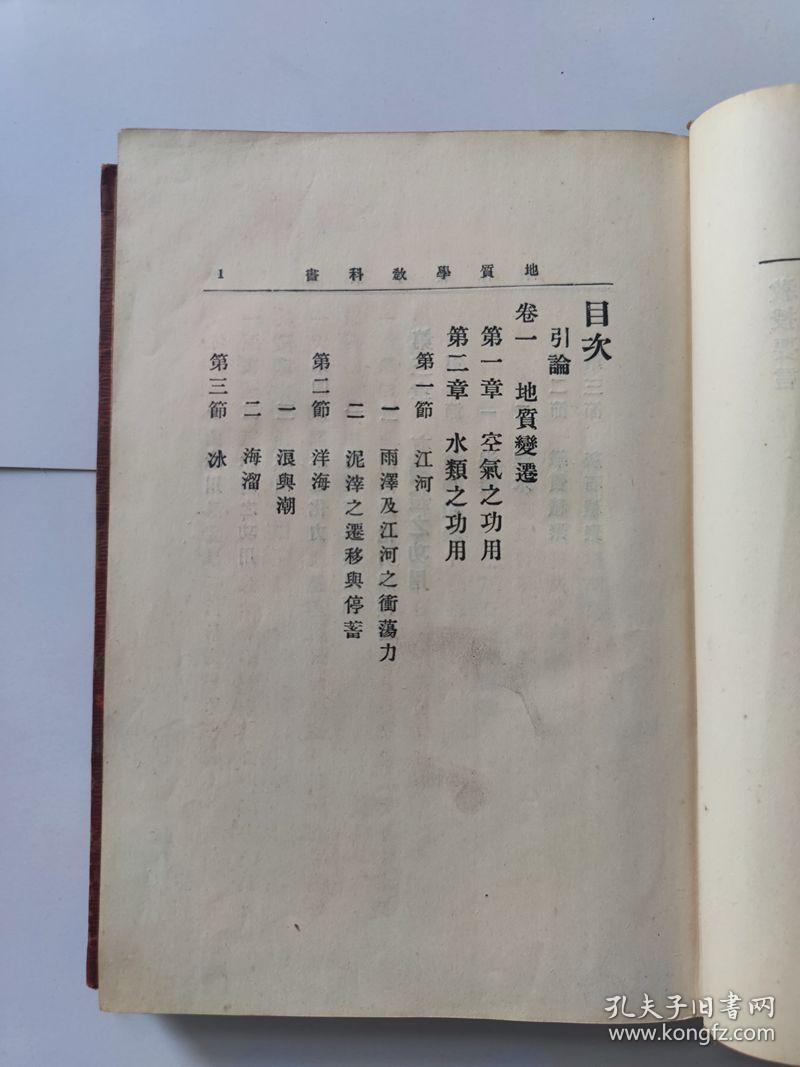 地質學教科書 1
目次
引論
卷一 地質變遷
第一章 空氣之功用
第二章 水類之功用
第一節 江河
一 雨澤及江河之衝蕩力
二 泥滓之遷移與停蓄
第二節 洋海
一 浪與潮
二 海溜
第三節 冰
孔夫子旧书网
www.kongfz.com